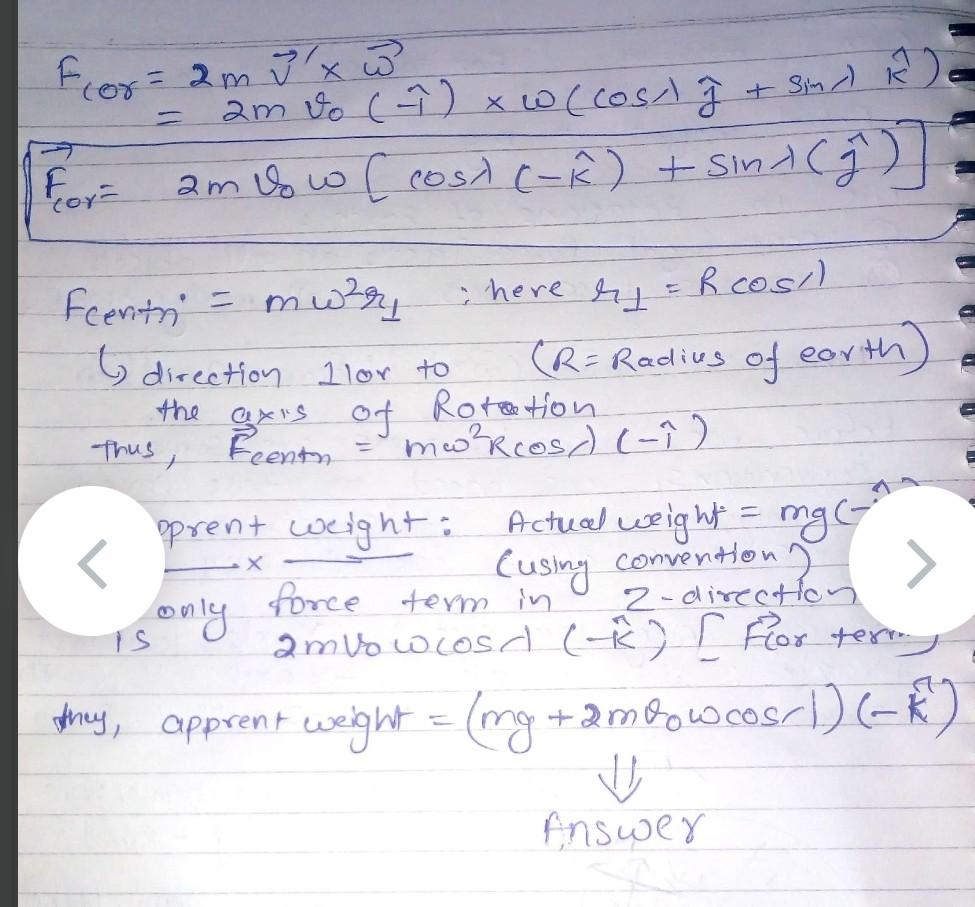 F cor = 2m v⃗' × ω⃗
= 2m v₀ (-î) × ω (cosλ ĵ + Sinλ k̂)
F⃗cor = 2m v₀ ω [ cosλ (-k̂) + Sinλ (ĵ) ]
Fcentri = mω²r⊥ ; here r⊥ = R cosλ
↳ direction ⊥lar to (R = Radius of earth)
the axis of Rotation
Thus, F⃗centri = mω²Rcosλ (-î)
pprent weight : Actual weight = mg(-
(using convention)
only force term in Z-direction
is 2mv₀ωcosλ (-k̂) [ F⃗cor term
thus, apprent weight = (mg + 2mv₀ωcosλ) (-k̂)
⇓
Answer